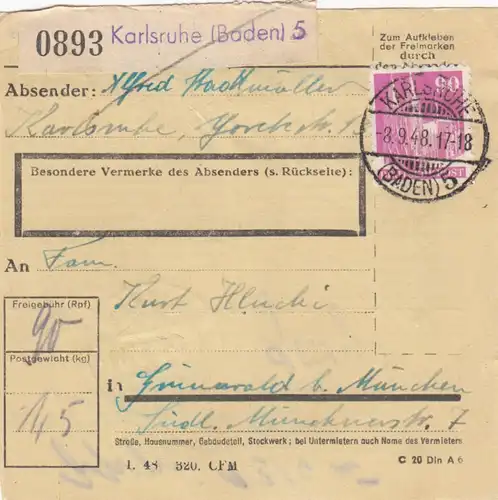 0893 Karlsruhe (Baden) 5
Zum Aufkleben
der Freimarken
durch
den Absender
90
KARLSRUHE
-8.9.48.17-18
(BADEN) 5
POST
Absender: Alfred
Karlsruhe, Yorckstr.
Besondere Vermerke des Absenders (s. Rückseite):
An Fam.
Kurt Hluchi
Freigebühr (Rpf)
90
Postgewicht (kg)
145
in Grünwald b. München
Südl. Münchnerstr. 7
Straße, Hausnummer, Gebäudeteil, Stockwerk; bei Untermietern auch Name des Vermieters
1. 48 320. CFM
C 20 Din A 6